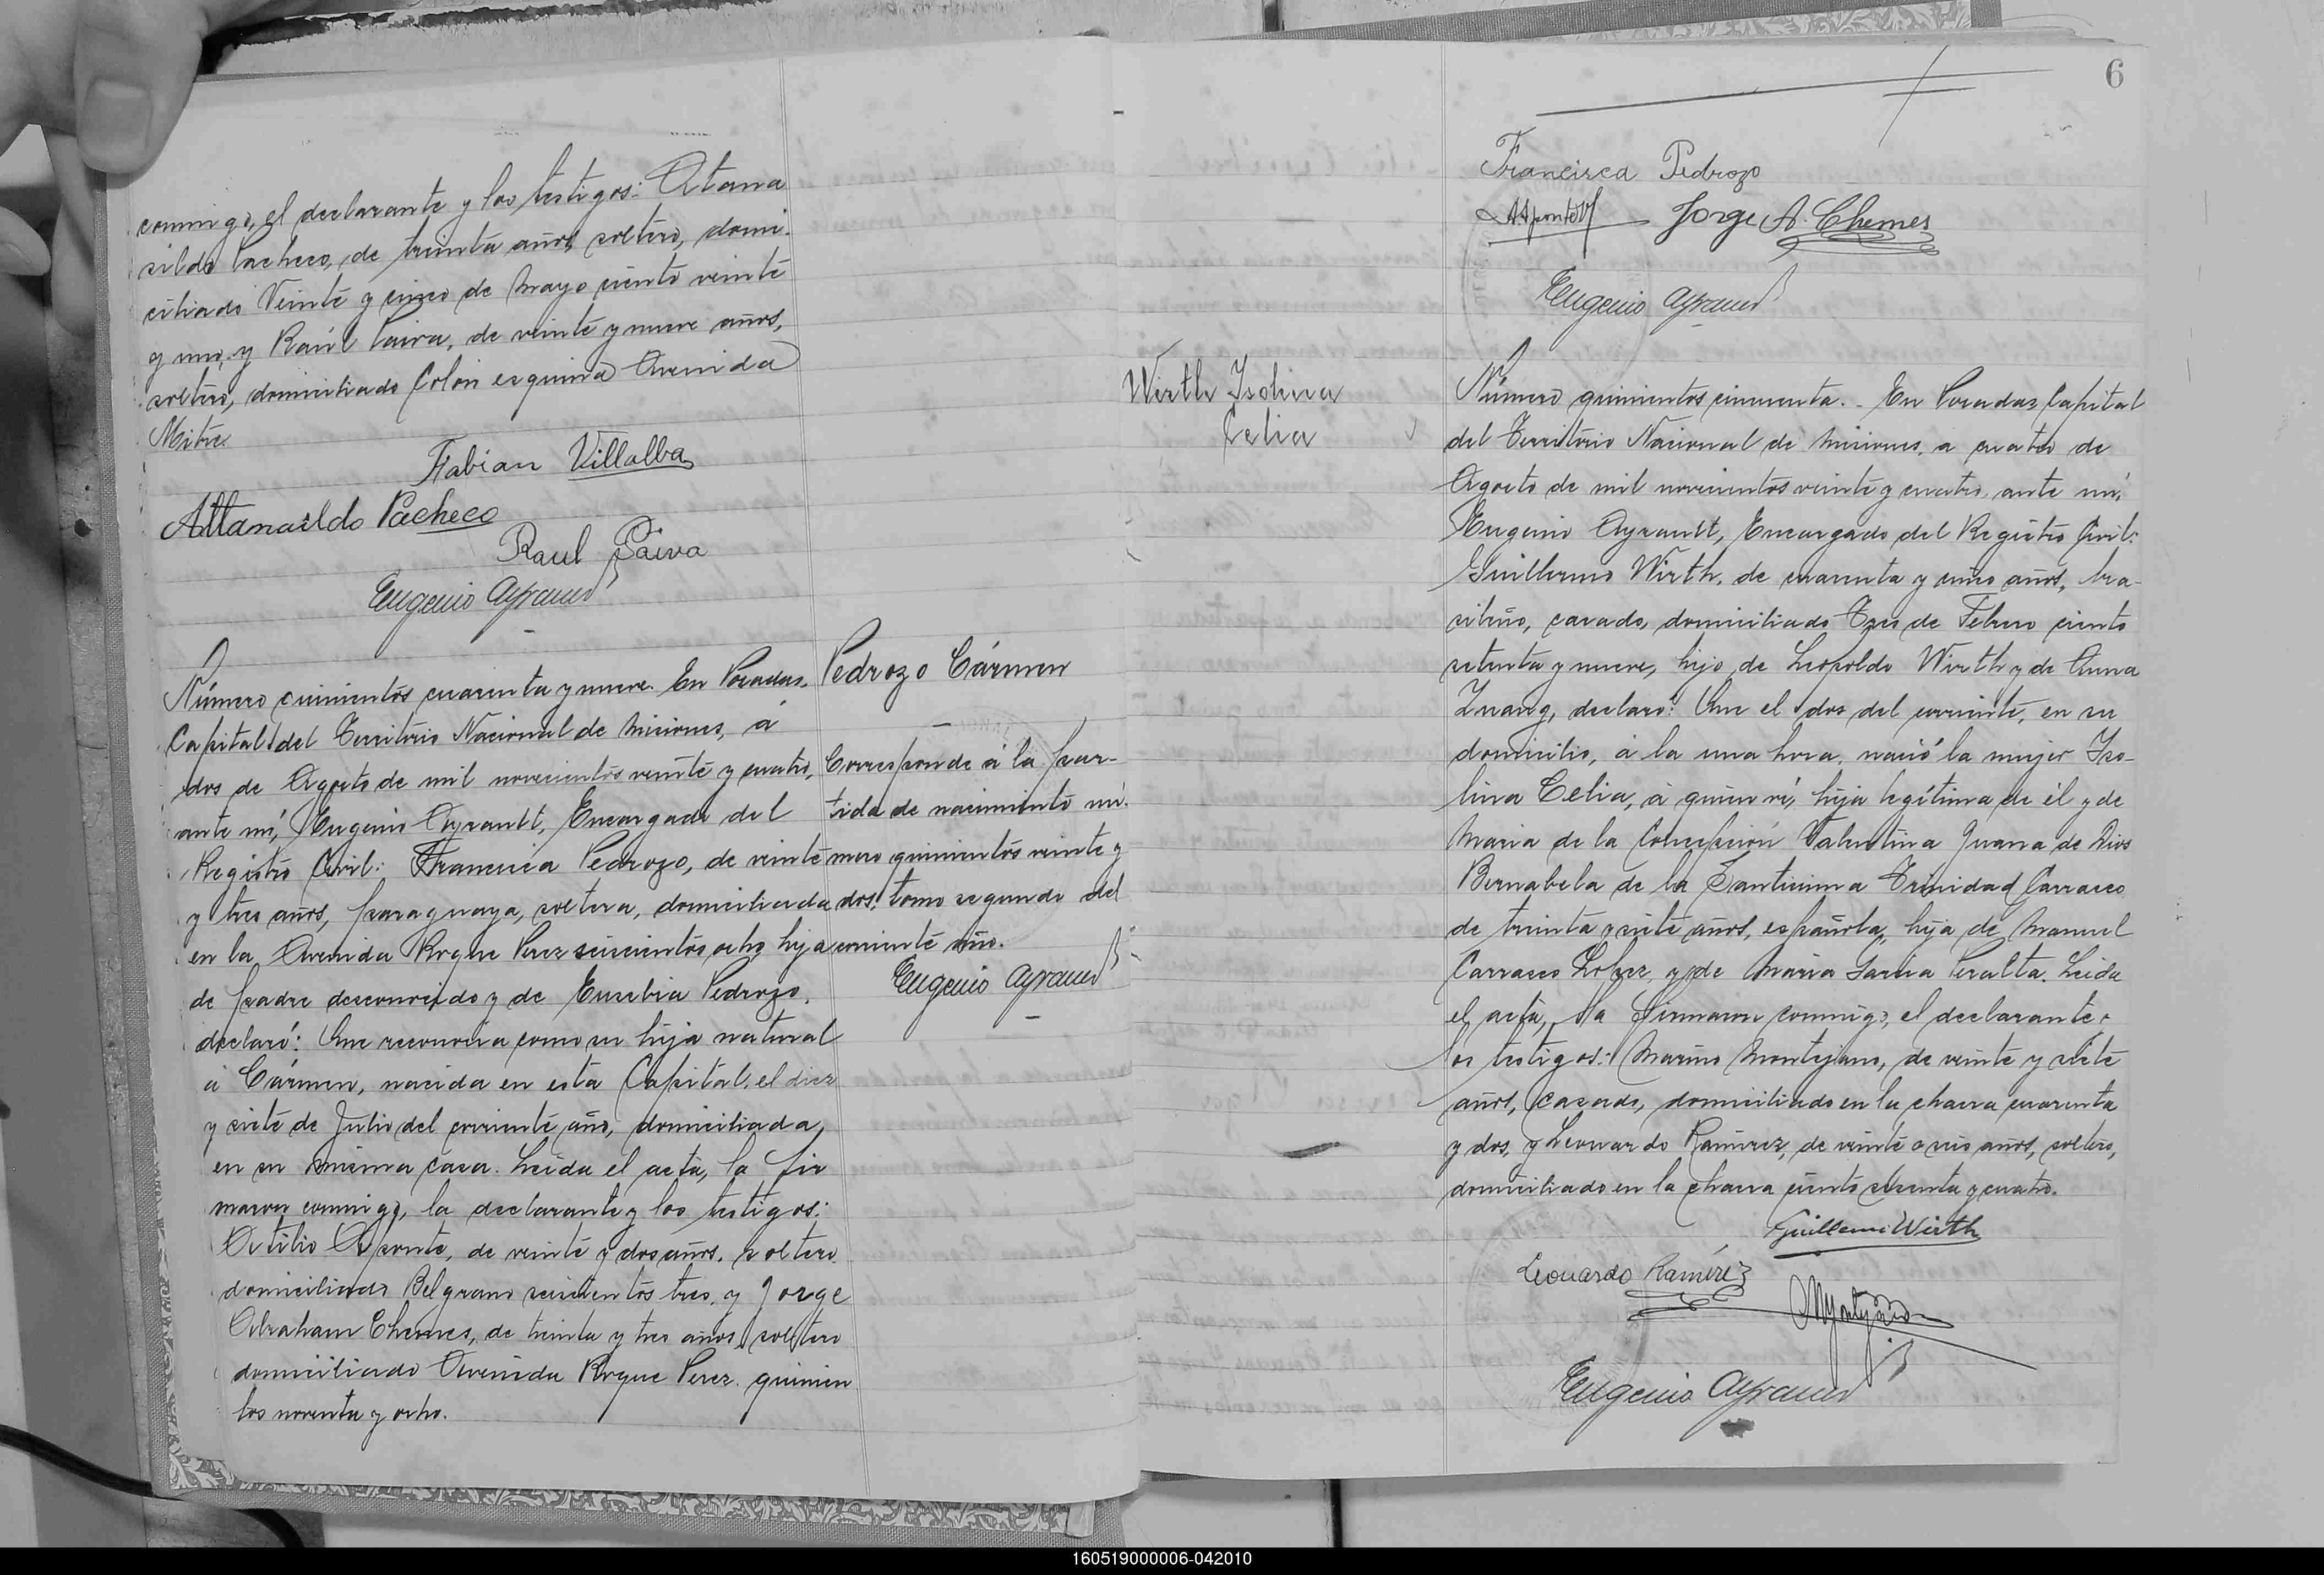 conmigo, el declarante y los testigos: Atana
sildo Pacheco, de treinta años, soltero, domi-
ciliado Veinte y cinco de Mayo ciento veinte
y uno, y Raúl Paiva, de veinte y nueve años,
soltero, domiciliado Colon esquina Avenida
Mitre.
Fabian Villalba
Attanasildo Pacheco
Raul Paiva
Eugenio Ayrault
Número quinientos cuarenta y nueve. En Posadas,
Capital del Territorio Nacional de Misiones, á
dos de Agosto de mil novecientos veinte y cuatro,
ante mí, Eugenio Ayrault, Encargado del
Registro Civil: Francisca Pedrozo, de veinte
y tres años, paraguaya, soltera, domiciliada
en la Avenida Roque Perez seiscientos ocho, hija
de padre desconocido y de Eusebia Pedrozo,
declaró: Que reconocía como su hija natural
á Cármen, nacida en esta Capital, el diez
y siete de Julio del corriente año, domiciliada,
en su misma casa. Leida el acta, la fir
maron conmigo, la declarante y los testigos:
Atilio Aponte, de veinte y dos años, soltero
domiciliado Belgrano seiscientos tres, y Jorge
Abraham Chemes, de treinta y tres años, soltero
domiciliado Avenida Roque Perez quinien
tos noventa y ocho.
Pedrozo Cármen
Corresponde á la par-
tida de nacimiento nú-
mero quinientos veinte y
dos, tomo segundo del
corriente año.
Eugenio Ayrault
6
Francisca Pedrozo
Jorge A. Chemes
Eugenio Ayrault
Wirth Isolina
Celia
Número quinientos cincuenta. En Posadas, Capital
del Territorio Nacional de Misiones, a cuatro de
Agosto de mil novecientos veinte y cuatro, ante mí,
Eugenio Ayrault, Encargado del Registro Civil:
Guillermo Wirth, de cuarenta y cinco años, bra-
sileño, casado, domiciliado Tres de Febrero ciento
setenta y nueve, hijo de Leopoldo Wirth y de Anna
Zuang, declaró: Que el dos del corriente, en su
domicilio, á la una hora, nació la mujer Iso-
lina Celia, á quien ví, hija legítima de él y de
Maria de la Concepción Valentina Juana de Dios
Bernabela de la Santisima Trinidad Carrasco
de treinta y siete años, española, hija de Manuel
Carrasco Lopez, y de Maria Peralta. Leida
el acta, la firmaron conmigo, el declarante y
los testigos: Marino Montejano, de veinte y siete
años, casado, domiciliado en la chacra cuarenta
y dos, y Leonardo Ramirez, de veinte y seis años, soltero,
domiciliado en la chacra ciento y cuatro.
Guillermo Wirth
Leonardo Ramírez
Eugenio Ayrault
160519000006-042010